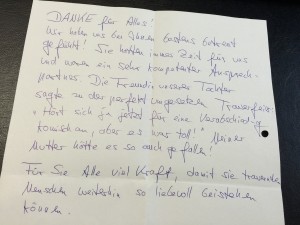 DANKE für Alles!
Wir haben uns bei Ihnen bestens betreut
gefühlt! Sie hatten immer Zeit für uns
und waren ein sehr kompetenter Ansprech-
partner. Die Freundin unserer Tochter
sagte zu der perfekt umgesetzten Trauerfeier:
"Hört sich ja jetzt für eine Verabschiedung
komisch an, aber es war toll!" Meiner
Mutter hätte es so auch gefallen!
Für Sie Alle viel Kraft, damit sie trauernden
Menschen weiterhin so liebevoll beistehen
können.